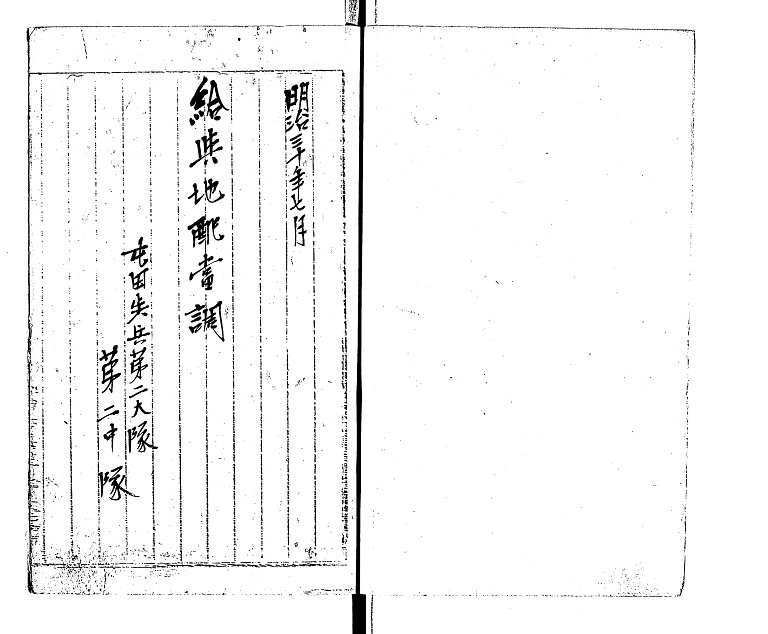 明治三十年七月
給與地配當調
屯田歩兵第二大隊
第二中隊